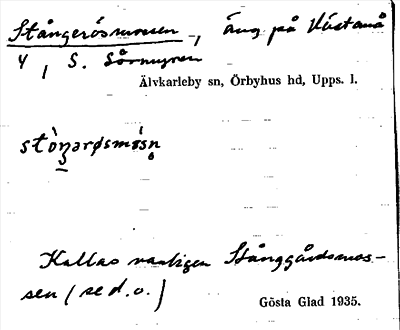 Stångerösmossen, äng på Västanå
4, S. Sörmyren
Älvkarleby sn, Örbyhus hd, Upps. l.
stòŋərøsmósn
Kallas vanligen Stånggårdsmos-
sen (se d. o.)
Gösta Glad 1935.